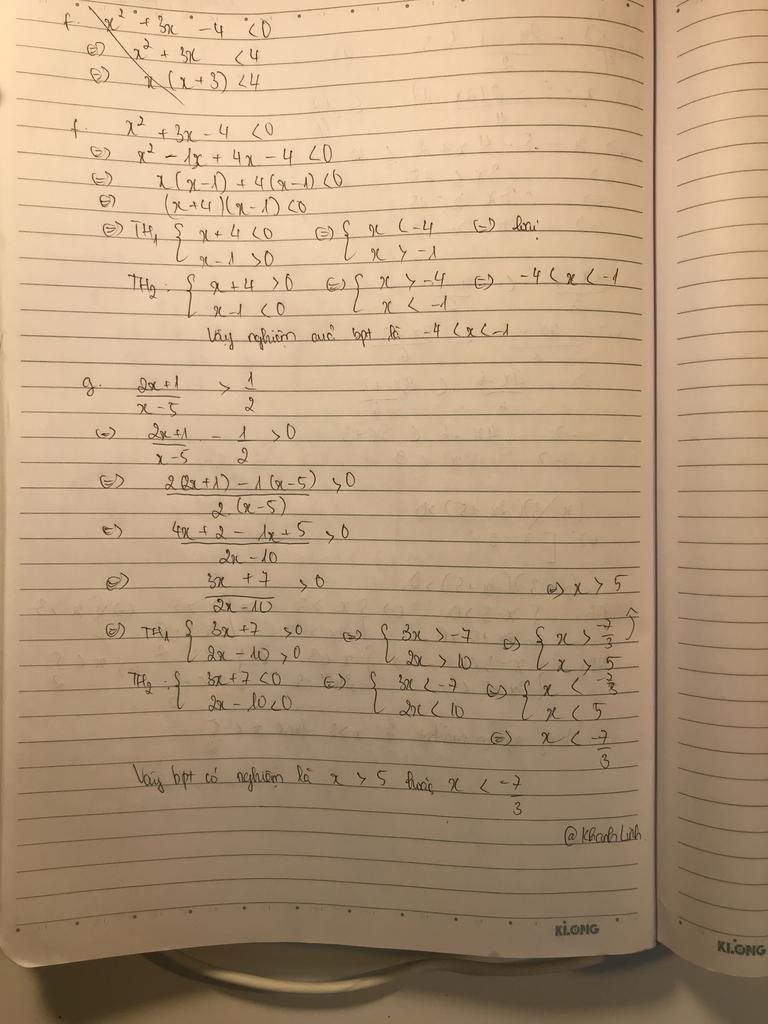 f. x² + 3x - 4 < 0
⇔ x² + 3x < 4
⇔ x (x + 3) < 4
f. x² + 3x - 4 < 0
⇔ x² - 1x + 4x - 4 < 0
⇔ x(x-1) + 4(x-1) < 0
⇔ (x+4)(x-1) < 0
⇔ TH₁ { x + 4 < 0 ⇔ { x < -4 ⇔ loại
x - 1 > 0 x > -1
TH₂ : { x + 4 > 0 ⇔ { x > -4 ⇔ -4 < x < -1
x - 1 < 0 x < -1
Vậy nghiệm của bpt là -4 < x < -1
g. 2x+1/x-5 > 1/2
⇔ 2x+1/x-5 - 1/2 > 0
⇔ 2(2x+1) - 1(x-5)/2(x-5) > 0
⇔ 4x + 2 - 1x + 5/2x - 10 > 0
⇔ 3x + 7/2x - 10 > 0 ⇔ x > 5
⇔ TH₁ { 3x + 7 > 0 ⇔ { 3x > -7 ⇔ { x > -7/3
2x - 10 > 0 2x > 10 x > 5
TH₂ : { 3x + 7 < 0 ⇔ { 3x < -7 ⇔ { x < -7/3
2x - 10 < 0 2x < 10 x < 5
⇔ x < -7/3
Vậy bpt có nghiệm là x > 5 hoặc x < -7/3
@Khanh Linh
KLONG
KLONG